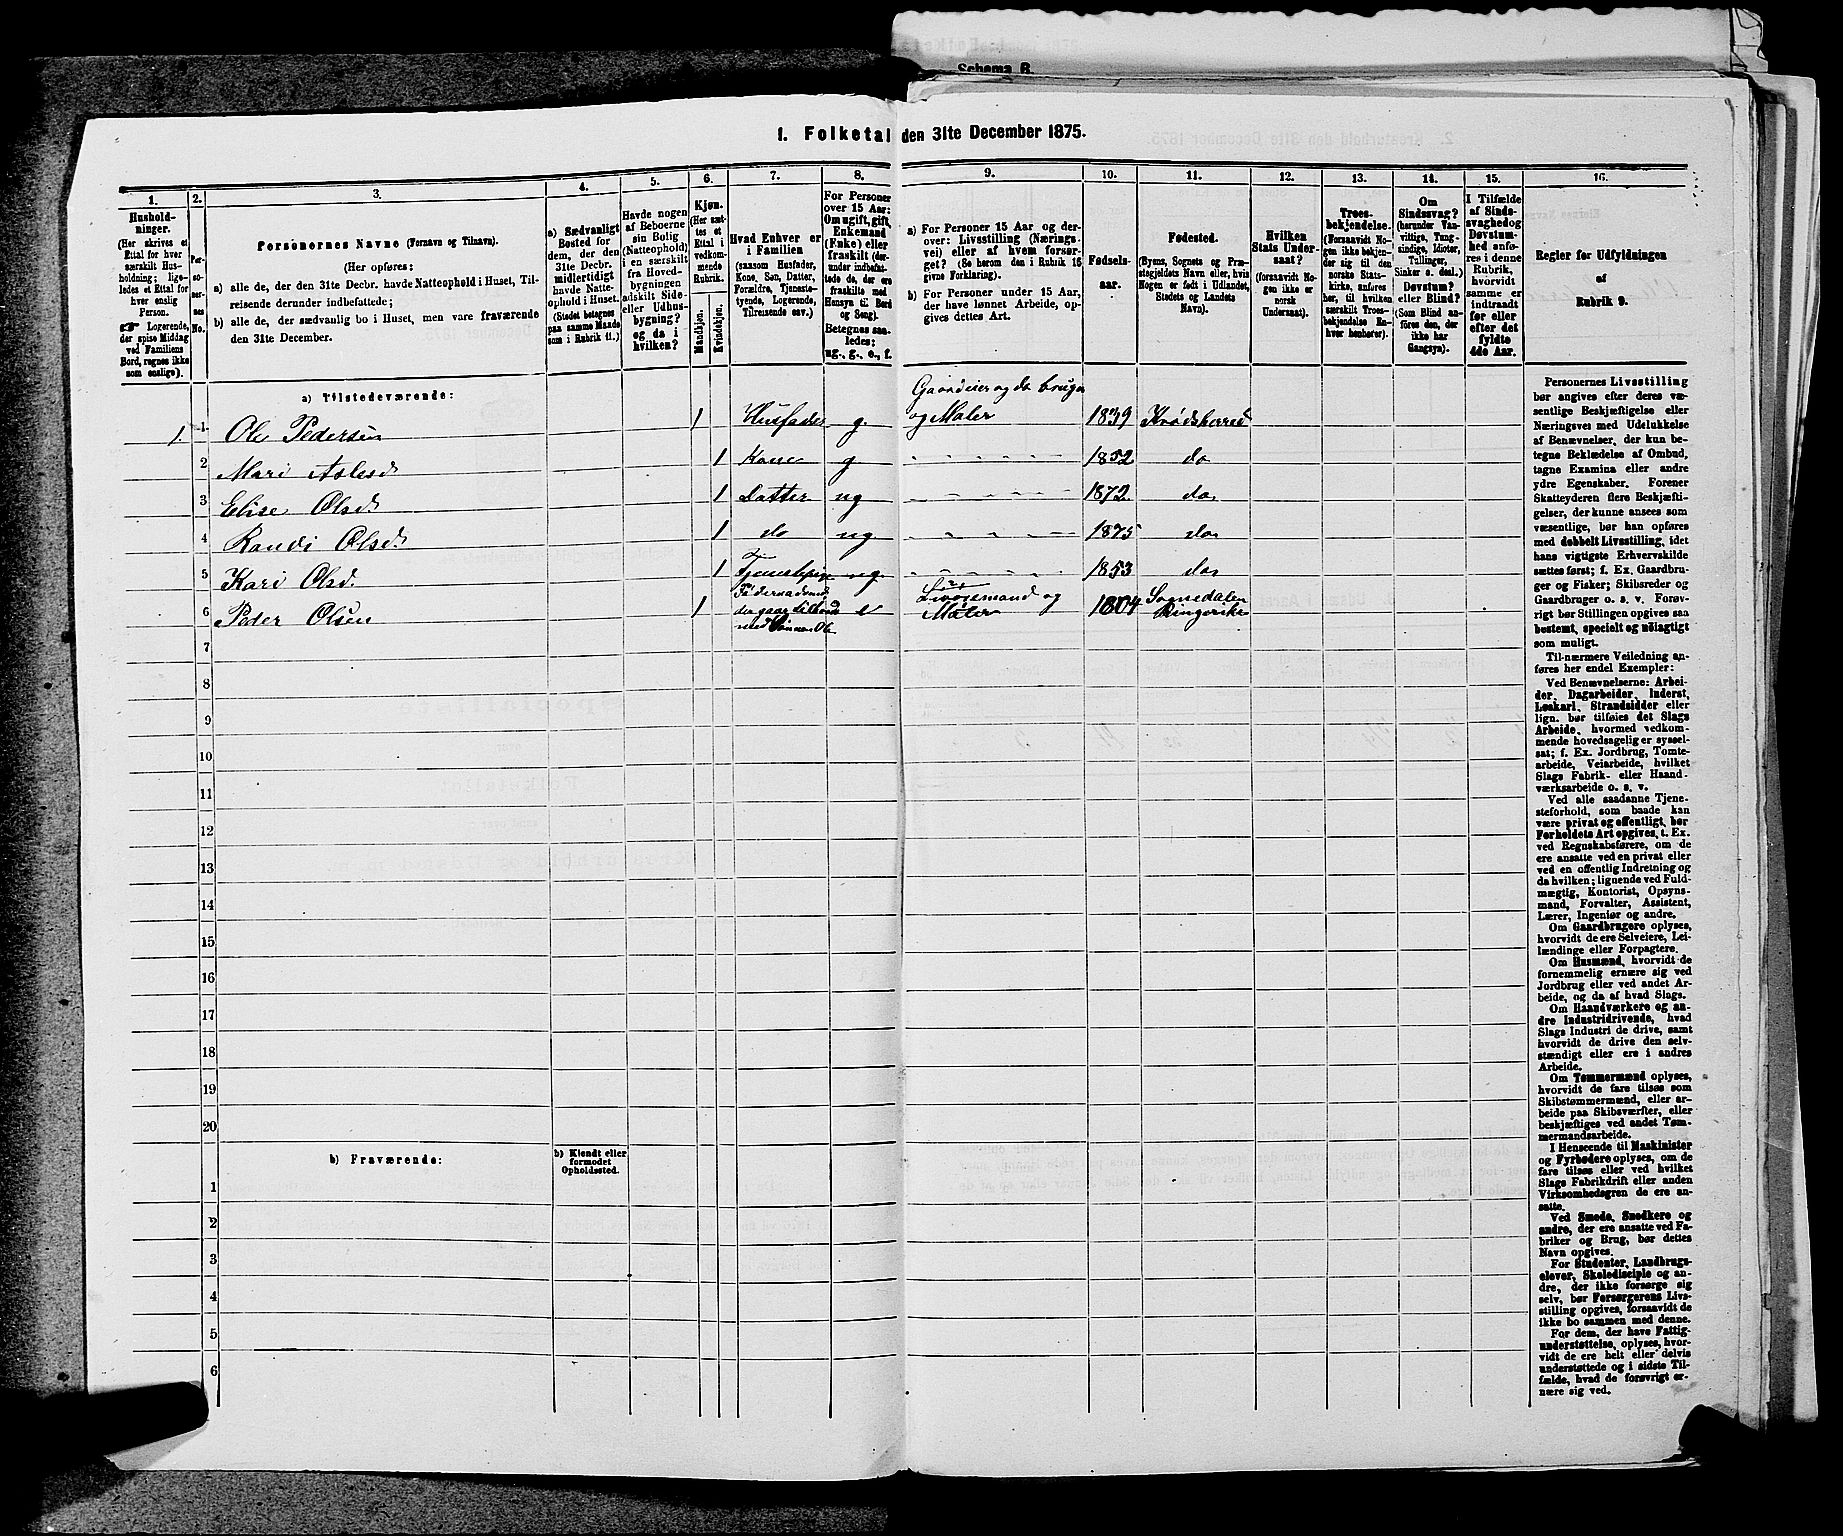 Schema B.
1. Folketal den 31te December 1875.
1.
Hushold-
ninger.
(Her skrives et
Ettal for hver
særskilt Hus-
holdning; lige-
ledes et Ettal
for hver
enslig
Person.
☞ Logerende,
der spise Middag
ved Familiens
Bord, regnes ikke
som enslige).
2.
Per-
so-
ner-
nes
No.
3.
Personernes Navne (Fornavn og Tilnavn).
(Her opføres:
a) alle de, der den 31te Decbr. havde Natteophold i Huset, Til-
reisende derunder indbefattede;
b) alle de, der sædvanlig bo i Huset, men vare fraværende
den 31te December.
4.
a) Sædvanligt
Bosted for
dem, der den
31te Decbr.
midlertidigt
havde Natte-
ophold i Huset.
(Stedet betegnes
paa samme Maade
som i Rubrik 11.)
5.
Havde nogen
af Beboerne
sin Bolig
(Natteophold)
i en særskilt
fra Hoved-
bygningen
adskilt Side-
eller Udhus-
bygning?
og da i
hvilken?
6.
Kjøn.
(Her sæt-
tes et
Ettal i
vedkom-
mende
Rubrik.
Mandkjøn.
Kvindekjøn.
7.
Hvad Enhver er
i Familien
(saasom Husfader,
Kone, Søn, Datter,
Forældre, Tjeneste-
tyende, Logerende,
Tilreisende osv.)
8.
For Personer
over 15 Aar:
Om ugift, gift,
Enkemand
(Enke) eller
fraskilt (der-
under indbefat-
tede de, der ere
fraskilte med
Hensyn til Bord
og Seng).
Betegnes saa-
ledes:
ug., g., e., f.
9.
a) For Personer 15 Aar og der-
over: Livsstilling (Nærings-
vei) eller af hvem forsør-
get? (Se herom den i Rubrik 16
givne Forklaring).
b) For Personer under 15 Aar,
der have lønnet Arbeide, op-
gives dettes Art.
10.
Fødsels-
aar.
11.
Fødested.
(Byens, Sognets og Præ-
stegjeldets Navn eller, hvis
Nogen er født i Udlandet,
Stedets og Landets
Navn).
12.
Hvilken
Stats Under-
saat?
(forsaavidt No-
gen ikke er
norsk
Undersaat).
13.
Troes-
bekjendelse.
(Forsaavidt No-
gen ikke bekjen-
der sig til den
norske Stats-
kirke, anføres
her, til hvilken
særskilt Troes-
bekjendelse En-
hver henhører).
14.
Om
Sindssvag?
(herunder Van-
vittige, Tung-
sindige, Idioter,
Tullinger,
Sinker o. desl.)
Døvstum?
eller Blind?
(Som Blind an-
føres den, der
ikke har
Gangsyn).
15.
I Tilfælde
af Sinds-
svaghed og
Døvstum-
hed anfø-
res i denne
Rubrik,
hvorvidt
samme er
indtraadt
før eller
efter det
fyldte
4de Aar.
16.
Regler for Udfyldningen
af
Rubrik 9.
a) Tilstedeværende:
1. 1 Ole Pedersen 1 Husfader g. Gaardeier og do bruger og Maler 1839 Krødsherred
2 Mari Aslesd 1 Kone g. 1852 do
3 Elise Olsd 1 Datter ug 1872 do
4 Randi Olsd 1 do ug 1875 do
5 Kari Olsd. 1 ug. 1853 do
6 Peder Olsen 1 e og Maler 1804 Sognedalen Ringerike
7
8
9
10
11
12
13
14
15
16
17
18
19
20
b) Fraværende:
b) Kjendt eller
formodet
Opholdssted.
1
2
3
4
5
6
Personernes Livsstilling
bør angives efter deres væ-
sentlige Beskjæftigelse eller
Næringsvei med Udelukkelse
af Benævnelser, der kun be-
tegne Beklædelse af Ombud,
tagne Examina eller andre
ydre Egenskaber. Forener
Skatteyderen flere Beskjæfti-
gelser, der kunne ansees som
væsentlige, bør han opføres
med dobbelt Livsstilling, idet
hans vigtigste Erhvervskilde
sættes først; f. Ex. Gaardbru-
ger og Fisker; Skibsreder og
Gaardbruger o. s. v. Forøv-
rigt bør Stillingen opgives saa
bestemt, specielt og nøiagtigt
som muligt.
Til nærmere Veiledning an-
føres her endel Exempler:
Ved Benævnelserne: Arbei-
der, Dagarbeider, Inderst,
Løskarl, Strandsidder eller
lign. bør tilføies det Slags
Arbeide, hvormed vedkom-
mende hovedsagelig er syssel-
sat; f. Ex. Jordbrug, Tomte-
arbeide, Veiarbeide, hvilket
Slags Fabrik- eller Haand-
værksarbeide o. s. v.
Ved alle saadanne Tjene-
steforhold, som baade kan
være privat og offentligt, bør
Forholdets Art opgives, t. Ex.
ved Regnskabsførere, om de
ere ansatte ved en privat eller
ved en offentlig Indretning og
da hvilken; lignende ved Fuld-
mægtig, Kontorist, Opsyns-
mand, Forvalter, Assistent,
Lærer, Ingeniør og andre.
Om Gaardbrugere oplyses,
hvorvidt de ere Selveiere, Lei-
lændinge eller Forpagtere.
Om Husmænd, hvorvidt de
fornemmelig ernære sig ved
Jordbrug eller ved andet Ar-
beide, og da af hvad Slags.
Om Haandværkere og an-
dre Industridrivende, hvad
Slags Industri de drive, samt
hvorvidt de drive den selv-
stændigt eller ere i andres
Arbeide.
Om Tømmermænd oplyses,
hvorvidt de fare tilsøs som
Skibstømmermænd, eller ar-
beide paa Skibsværfter, eller
beskjæftiges ved andet Tøm-
mermandsarbeide.
I Henseende til Maskinister
og Fyrbødere oplyses, om de
fare tilsøs eller ved hvilket
Slags Fabrikdrift eller anden
Virksomhedsgren de ere an-
satte.
Ved Smede, Snedkere og
andre, der ere ansatte ved Fa-
briker og Brug, bør dettes
Navn opgives.
For Studenter, Landbrugs-
elever, Skoledisciple og an-
dre, der ikke forsørge sig
selv, bør Forsørgerens Livs-
stilling opgives, forsaavidt de
ikke bo sammen med denne.
For dem, der have Fattig-
understøttelse, oplyses, hvor-
vidt de ere helt eller delvis
understøttede og i sidste Til-
fælde, hvad de forøvrigt er-
nære sig ved.